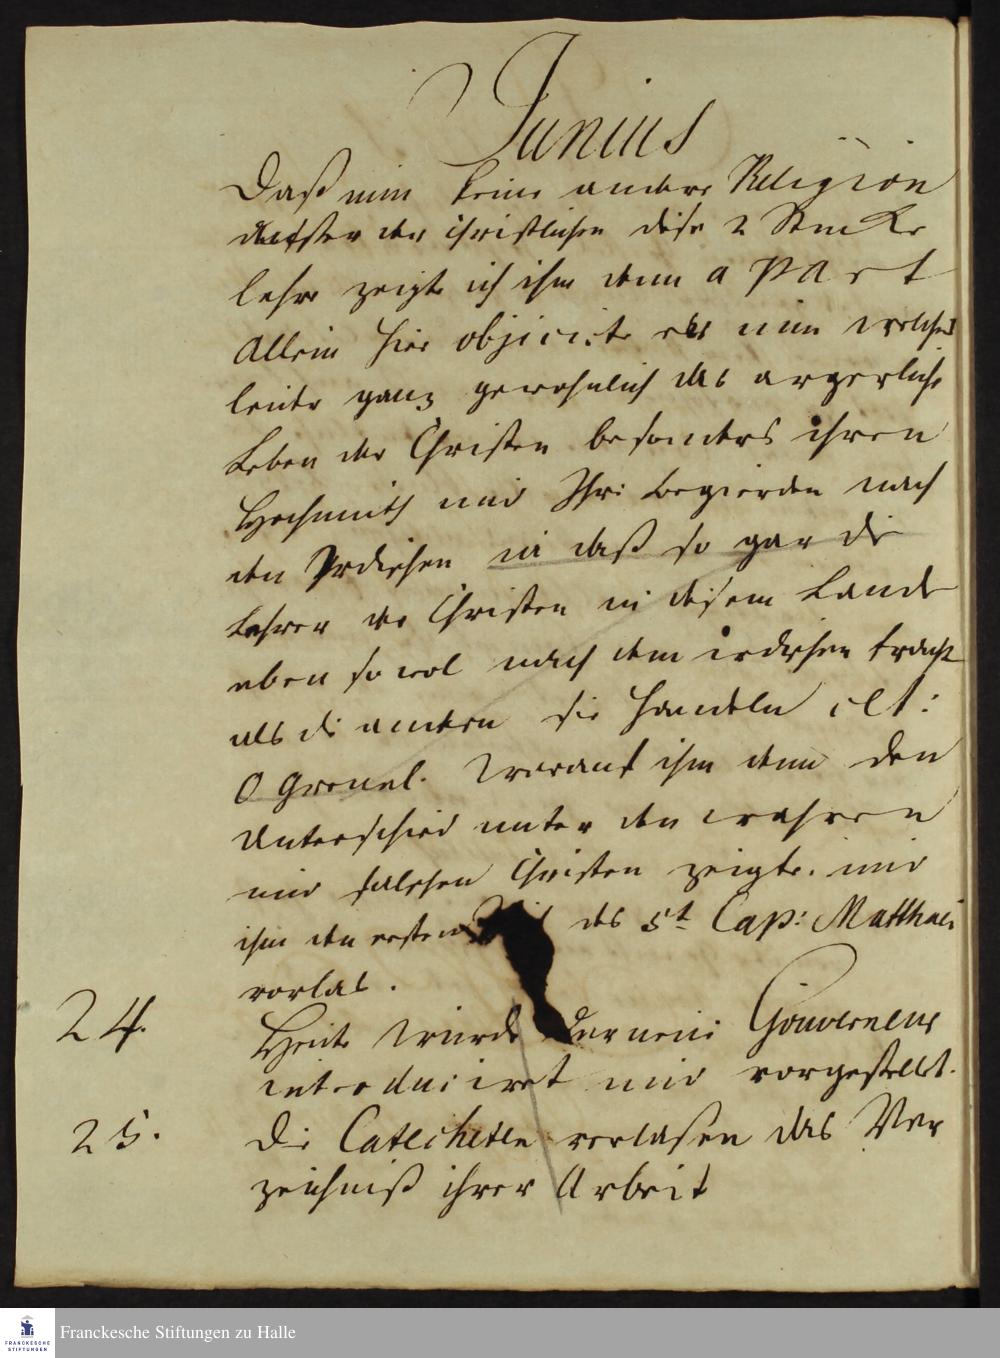 Junius
Daß nun keine andere Religion
außer der christlichen diese 2 Stucke
lehre zeigte ich ihm denn a part
Allein hier objicirte er nun welches
leute ganz gewohnlich das argerliche
Leben der Christen besonders ihren
Hochmuth und Ihre Begierden nach
den Irdischen in daß so gar die
Lehrer der Christen in diesem Lande
eben so wol nach dem irdischen tracht
als die andern sie handeln etc:
O Greuel. Worauf ihm denn den
Unterschied unter den wahren
und falschen Christen zeigte. und
ihm den ersten des 5t Cap: Matthaei
vorlas.
24. Heute wurde der neue Gouverneur
introduciret und vorgestellet.
25. Die Catecheten verlasen das Ver
zeichniß ihrer Arbeit
Franckesche Stiftungen zu Halle
FRANCKESCHE
STIFTUNGEN